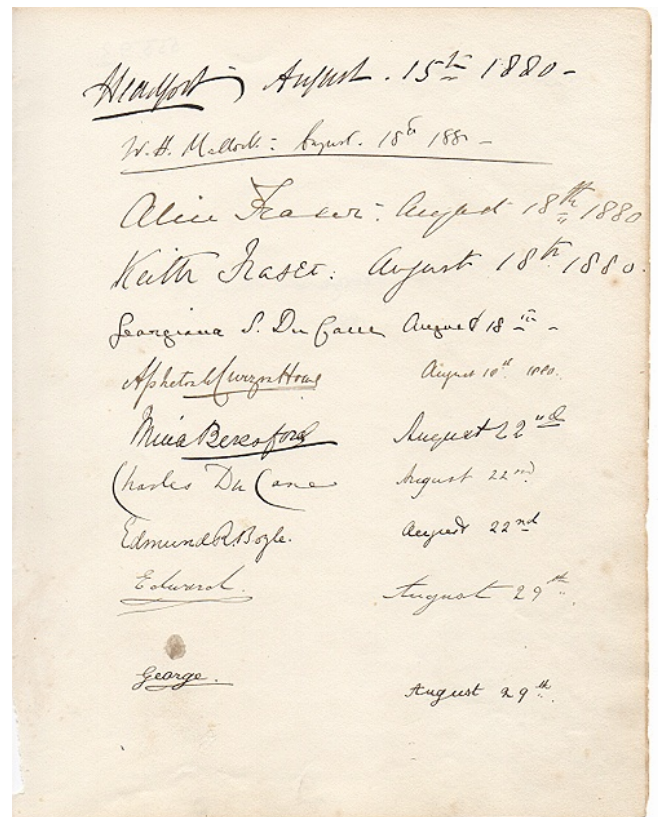 Headfort August. 15th 1880 -
W. H. Mallock: August. 18th 1880 -
Alice Fraser: August 18th 1880
Keith Fraser: August 18th 1880.
Georgiana S. Du Cane August 18th -
Curzon Howe August 18th 1880.
Mina Beresford August 22nd
Charles Du Cane August 22nd
Edmund R. Boyle. August 22nd
Edward. August 29th.
George. August 29th.